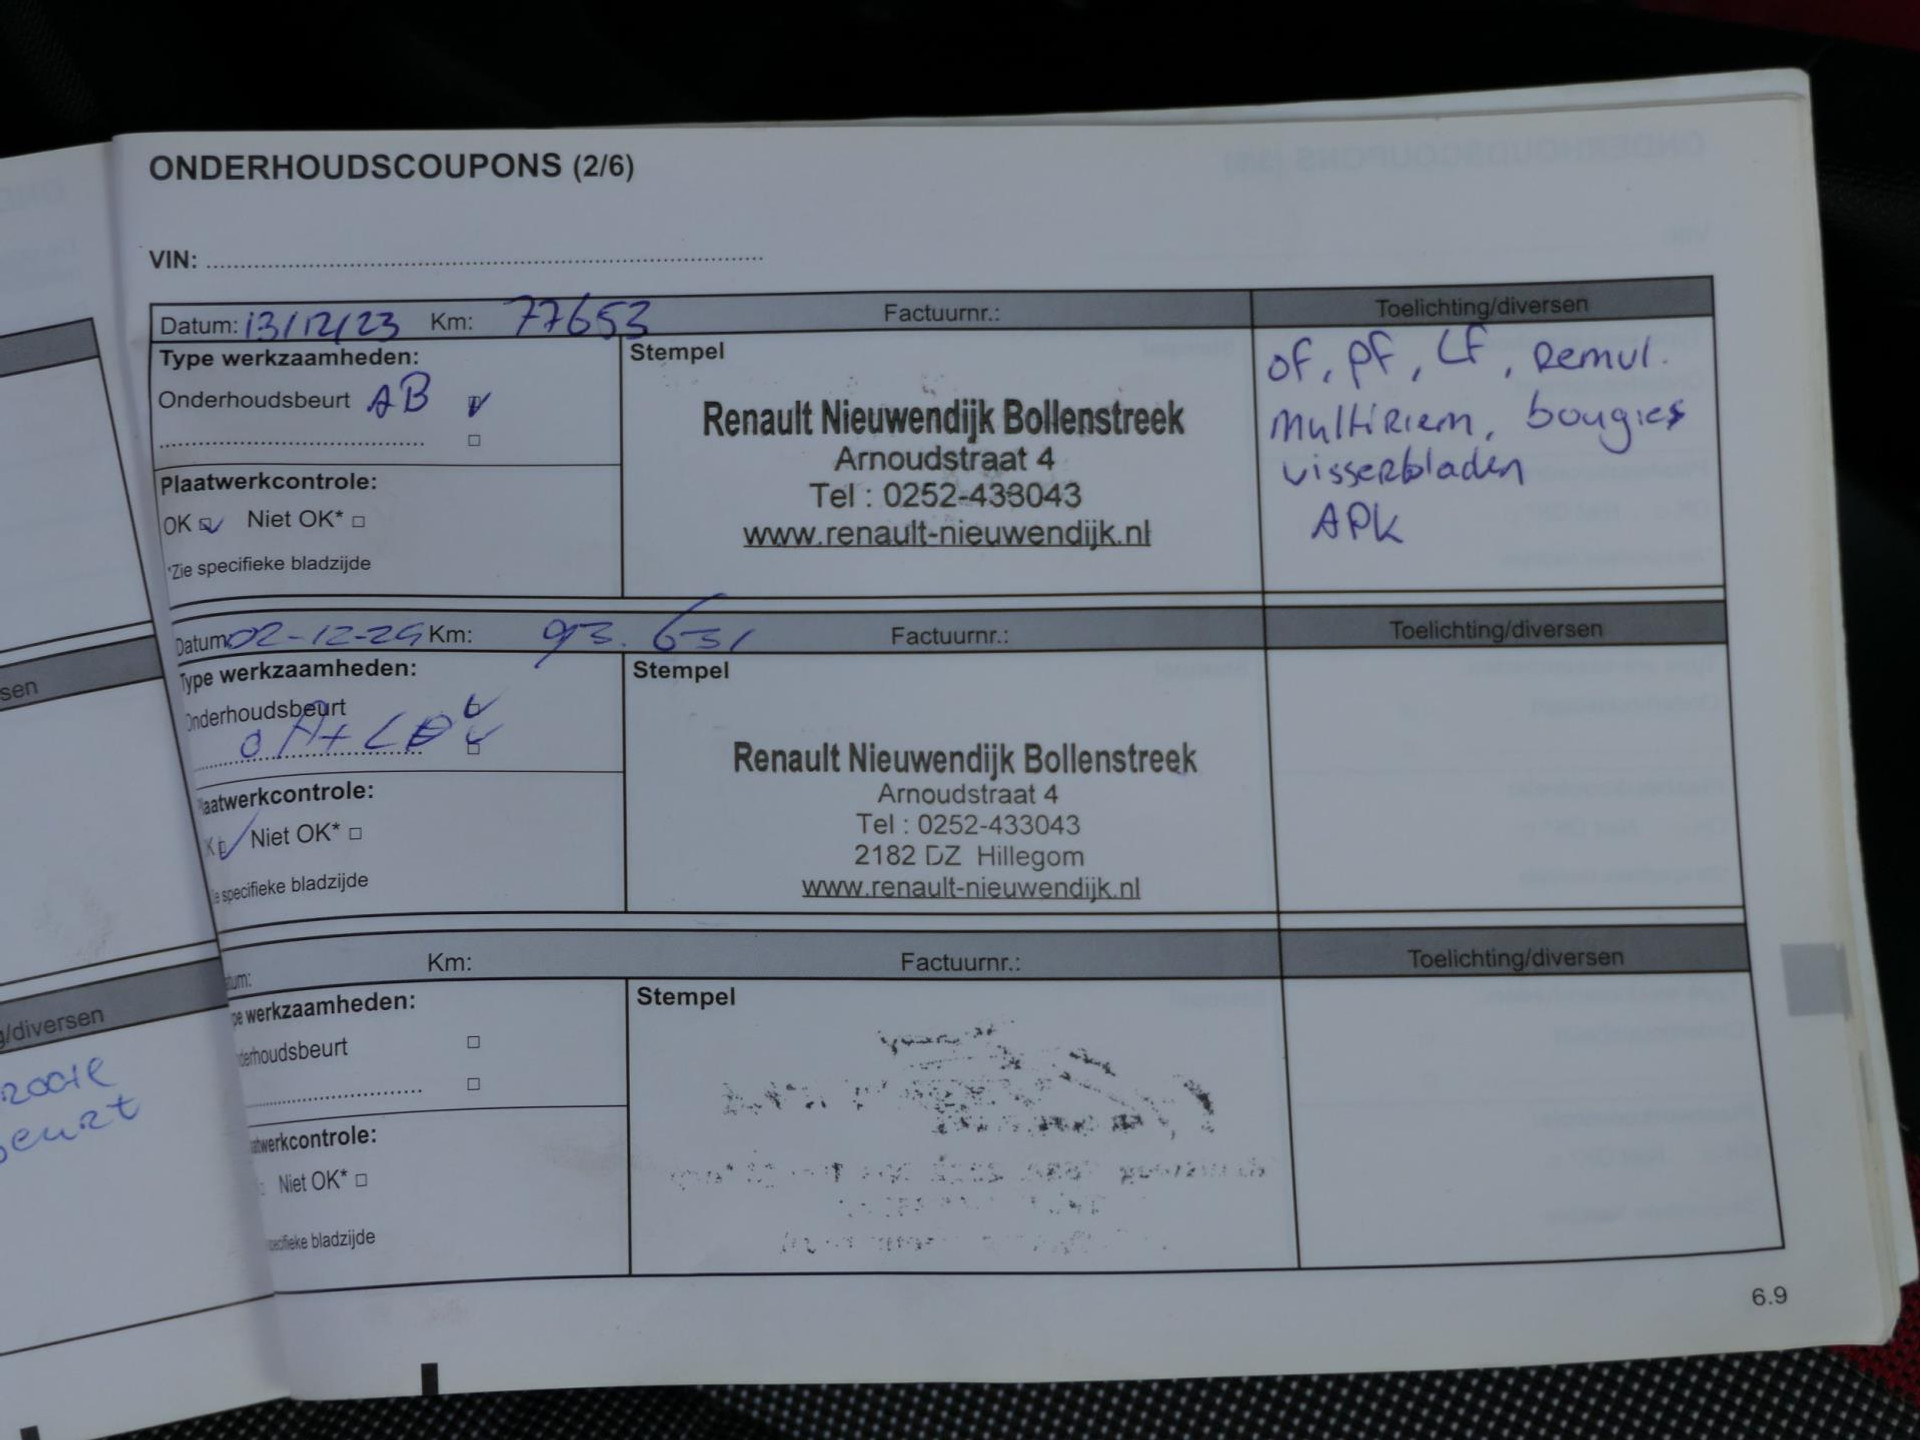 ONDERHOUDSCOUPONS (2/6)
VIN:
Datum: 13/12/23 Km: 77653 Factuurnr.: Toelichting/diversen
Type werkzaamheden:
Onderhoudsbeurt AB
Plaatwerkcontrole:
OK Niet OK*
*Zie specifieke bladzijde
Stempel
Renault Nieuwendijk Bollenstreek
Arnoudstraat 4
Tel : 0252-433043
www.renault-nieuwendijk.nl
OF, PF, LF, Remul.
Multiriem, bougies
visserbladen
APK
Datum 02-12-24 Km: 93.631 Factuurnr.: Toelichting/diversen
Type werkzaamheden:
Onderhoudsbeurt
Plaatwerkcontrole:
Niet OK*
specifieke bladzijde
Stempel
Renault Nieuwendijk Bollenstreek
Arnoudstraat 4
Tel : 0252-433043
2182 DZ Hillegom
www.renault-nieuwendijk.nl
tum: Km: Factuurnr.: Toelichting/diversen
pe werkzaamheden:
derhoudsbeurt
atwerkcontrole:
Niet OK*
specifieke bladzijde
Stempel
6.9
sen
g/diversen